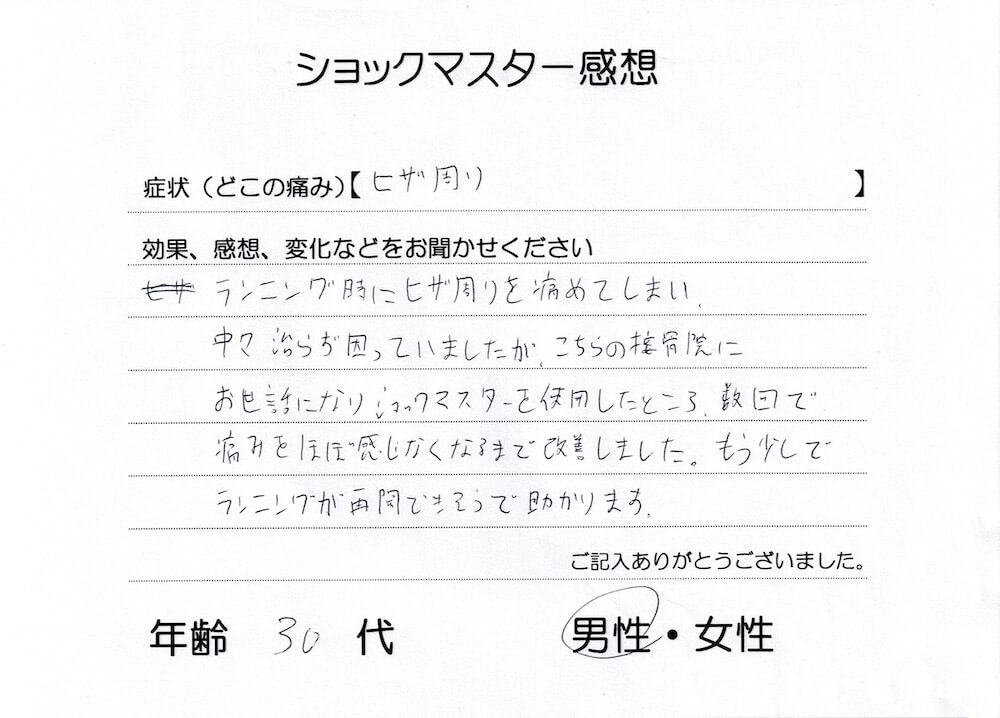 ショックマスター感想
症状（どこの痛み）【ヒザ周り】
効果、感想、変化などをお聞かせください
ヒザ ランニング時にヒザ周りを痛めてしまい、
中々治らず困っていましたが、こちらの接骨院に
お世話になりショックマスターを使用したところ、数回で
痛みをほぼ感じなくなるまで改善しました。もう少しで
ランニングが再開できそうで助かります。
ご記入ありがとうございました。
年齢 30 代 男性・女性